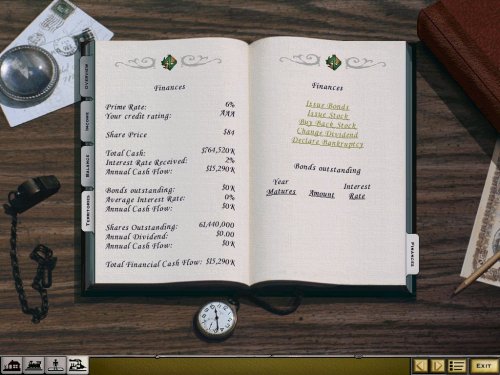 OVERVIEW
INCOME
BALANCE
TERRITORIES
Finances
Prime Rate: 6%
Your credit rating: AAA
Share Price $84
Total Cash: $764,520K
Interest Rate Received: 2%
Annual Cash Flow: $15,290K
Bonds outstanding: $0K
Average Interest Rate: 0%
Annual Cash Flow: $0K
Shares Outstanding: 61,440,000
Annual Dividend: $0.00
Annual Cash Flow: $0K
Total Financial Cash Flow: $15,290K
Finances
Issue Bonds
Issue Stock
Buy Back Stock
Change Dividend
Declare Bankruptcy
Bonds outstanding
Year Matures Amount Interest Rate
FINANCES
EXIT